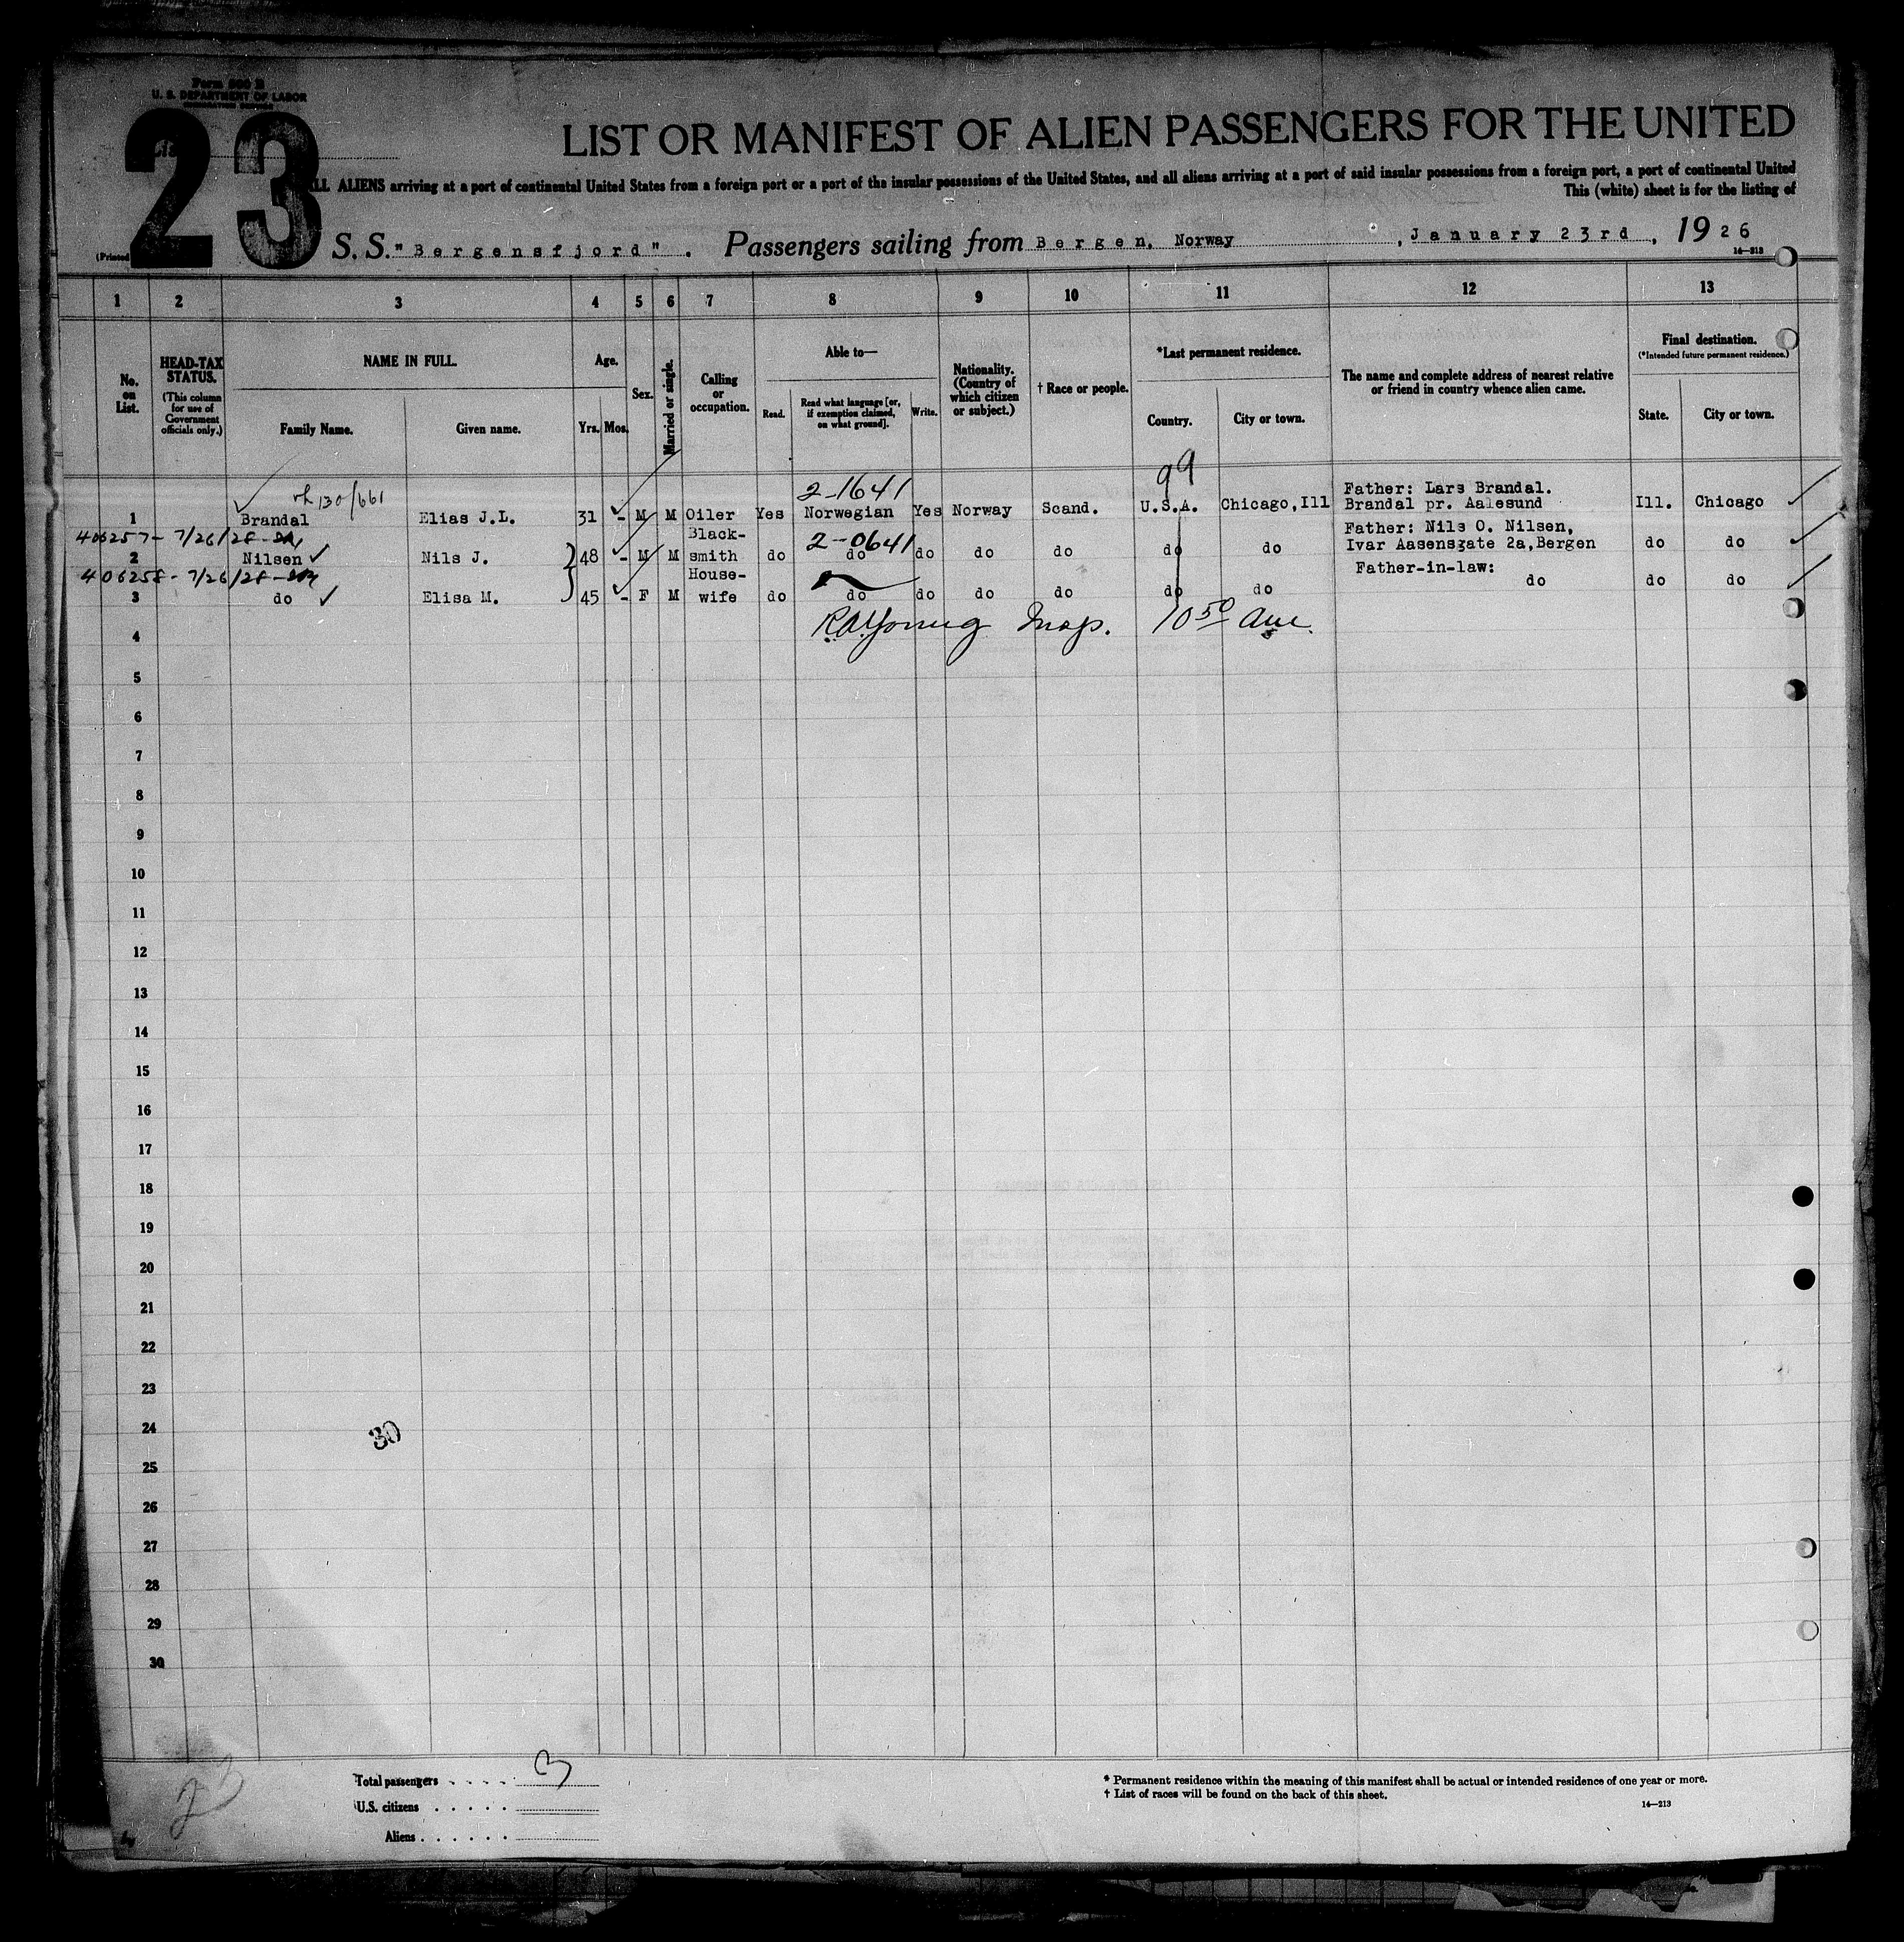 Form 500 B
U. S. DEPARTMENT OF LABOR
23
LIST OR MANIFEST OF ALIEN PASSENGERS FOR THE UNITED
ALL ALIENS arriving at a port of continental United States from a foreign port or a port of the insular possessions of the United States, and all aliens arriving at a port of said insular possessions from a foreign port, a port of continental United
This (white) sheet is for the listing of
(Printed
S. S. "Bergensfjord". Passengers sailing from Bergen, Norway, January 23rd, 1926
14—213
1 2 3 4 5 6 7 8 9 10 11 12 13
No. on List.
HEAD-TAX STATUS.
(This column for use of Government officials only.)
NAME IN FULL.
Family Name.
Given name.
Age.
Yrs. Mos.
Sex.
Married or single.
Calling or occupation.
Able to—
Read.
Read what language [or, if exemption claimed, on what ground].
Write.
Nationality. (Country of which citizen or subject.)
† Race or people.
*Last permanent residence.
Country.
City or town.
The name and complete address of nearest relative or friend in country whence alien came.
Final destination.
(*Intended future permanent residence.)
State.
City or town.
130/661
2-1641
99
Father: Lars Brandal.
1 Brandal Elias J.L. 31 - M M Oiler Yes Norwegian Yes Norway Scand. U.S.A. Chicago,Ill Brandal pr. Aalesund Ill. Chicago
406257- 7/26/28 Black- 2-0641 Father: Nils O. Nilsen,
2 Nilsen Nils J. 48 - M M smith do do do do do do do Ivar Aasensgate 2a,Bergen do do
406258- 7/26/28 House- Father-in-law:
3 do Elisa M. 45 - F M wife do do do do do do do do do do
4 R.A. Young Insp. 10 50 Am.
5
6
7
8
9
10
11
12
13
14
15
16
17
18
19
20
21
22
23
24
30
25
26
27
28
29
30
23
Total passengers . . . . 3
U.S. citizens . . . . .
Aliens . . . . . .
* Permanent residence within the meaning of this manifest shall be actual or intended residence of one year or more.
† List of races will be found on the back of this sheet.
14—213